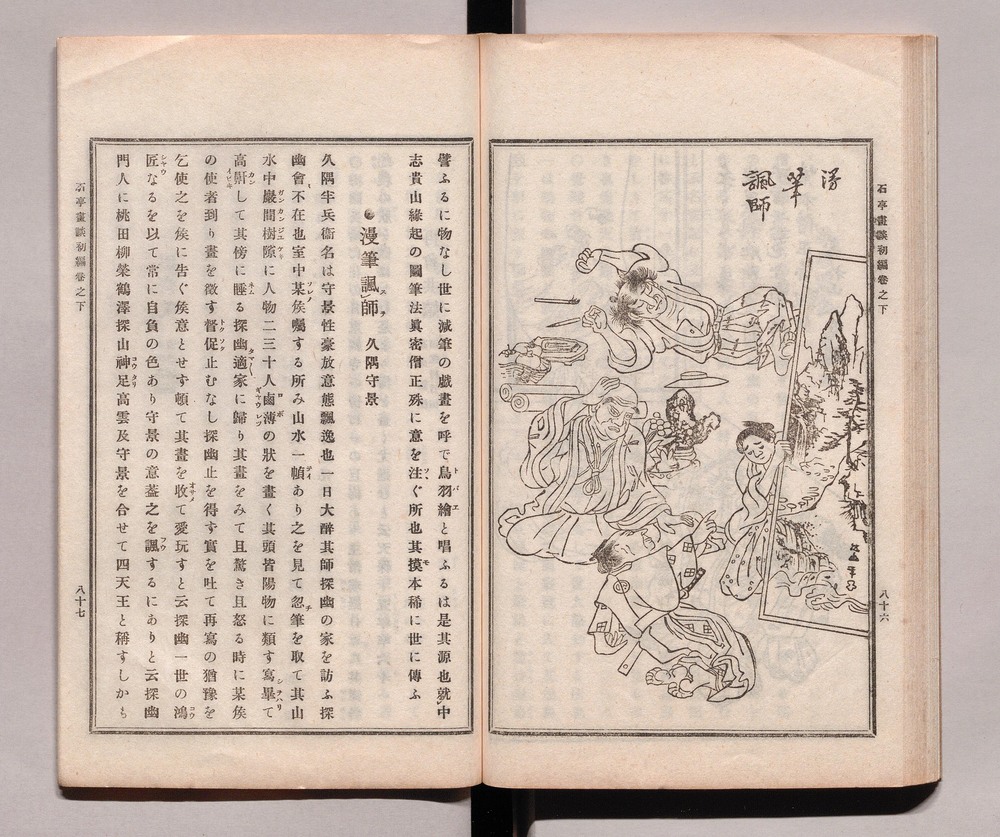 石亭畫談初編卷之下
八十六
漫
筆
諷師
譬ふるに物なし世に減筆の戯畫を呼で鳥羽繪と唱ふるは是其源也就中
志貴山緣起の圖筆法眞密僧正殊に意を注ぐ所也其摸本稀に世に傳ふ
漫筆諷師 久隅守景
久隅半兵衞名は守景性豪放意態飄逸也一日大醉其師探幽の家を訪ふ探
幽會不在也室中某侯囑する所み山水一幀あり之を見て忽筆を取て其山
水中巖間樹隙に人物二三十人鹵薄の狀を畫く其頭皆陽物に類す寫畢て
高鼾して其傍に睡る探幽適家に歸り其畫をみて且驚き且怒る時に某侯
の使者到り畫を徵す督促止むなし探幽止を得す實を吐て再寫の猶豫を
乞使之を侯に告ぐ侯意とせす頓て其畫を收て愛玩すと云探幽一世の鴻
匠なるを以て常に自負の色あり守景の意蓋之を諷するにありと云探幽
門人に桃田柳榮鶴澤探山神足高雲及守景を合せて四天王と稱すしかも
石亭畫談初編卷之下
八十七